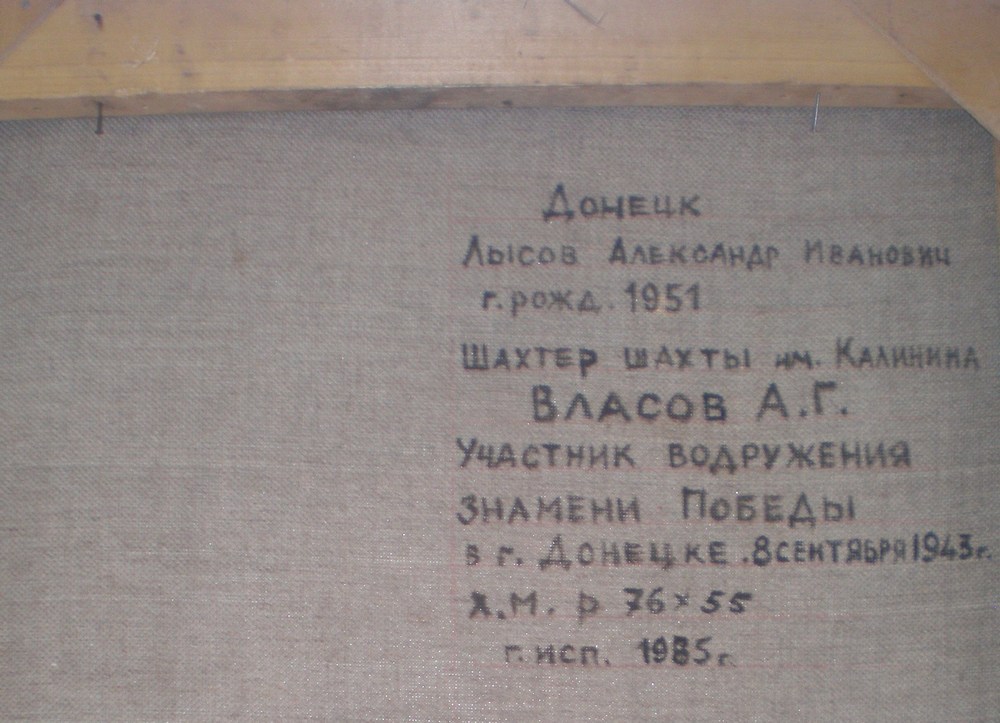 Донецк
Лысов Александр Иванович
г. рожд. 1951
Шахтер шахты им. Калинина
Власов А.Г.
Участник водружения
знамени Победы
в г. Донецке. 8 сентября 1943 г.
х.м. р 76 × 55
г. исп. 1985 г.